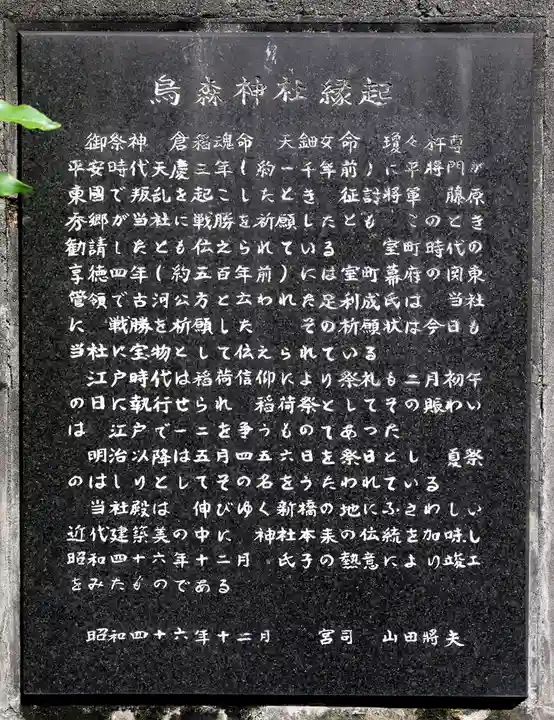 烏森神社縁起
御祭神　倉稲魂命　天鈿女命　瓊々杵尊
平安時代天慶三年（約一千年前）に平將門が
東國で叛乱を起こしたとき　征討將軍　藤原
秀郷が当社に戦勝を祈願したとも　このとき
勧請したとも伝えられている　　室町時代の
享徳四年（約五百年前）には室町幕府の関東
管領で古河公方と云われた足利成氏は　当社
に　戦勝を祈願した　　その祈願状は今日も
当社に宝物として伝えられている
江戸時代は稲荷信仰により祭礼も二月初午
の日に執行せられ　稲荷祭としてその賑わい
は　江戸で一二を争うものであつた
明治以降は五月四五六日を祭日とし　夏祭
のはしりとしてその名をうたわれている
当社殿は　伸びゆく新橋の地にふさわしい
近代建築美の中に　神社本来の伝統を加味し
昭和四十六年十二月　氏子の熱意により竣工
をみたものである
昭和四十六年十二月　　宮司　山田將夫